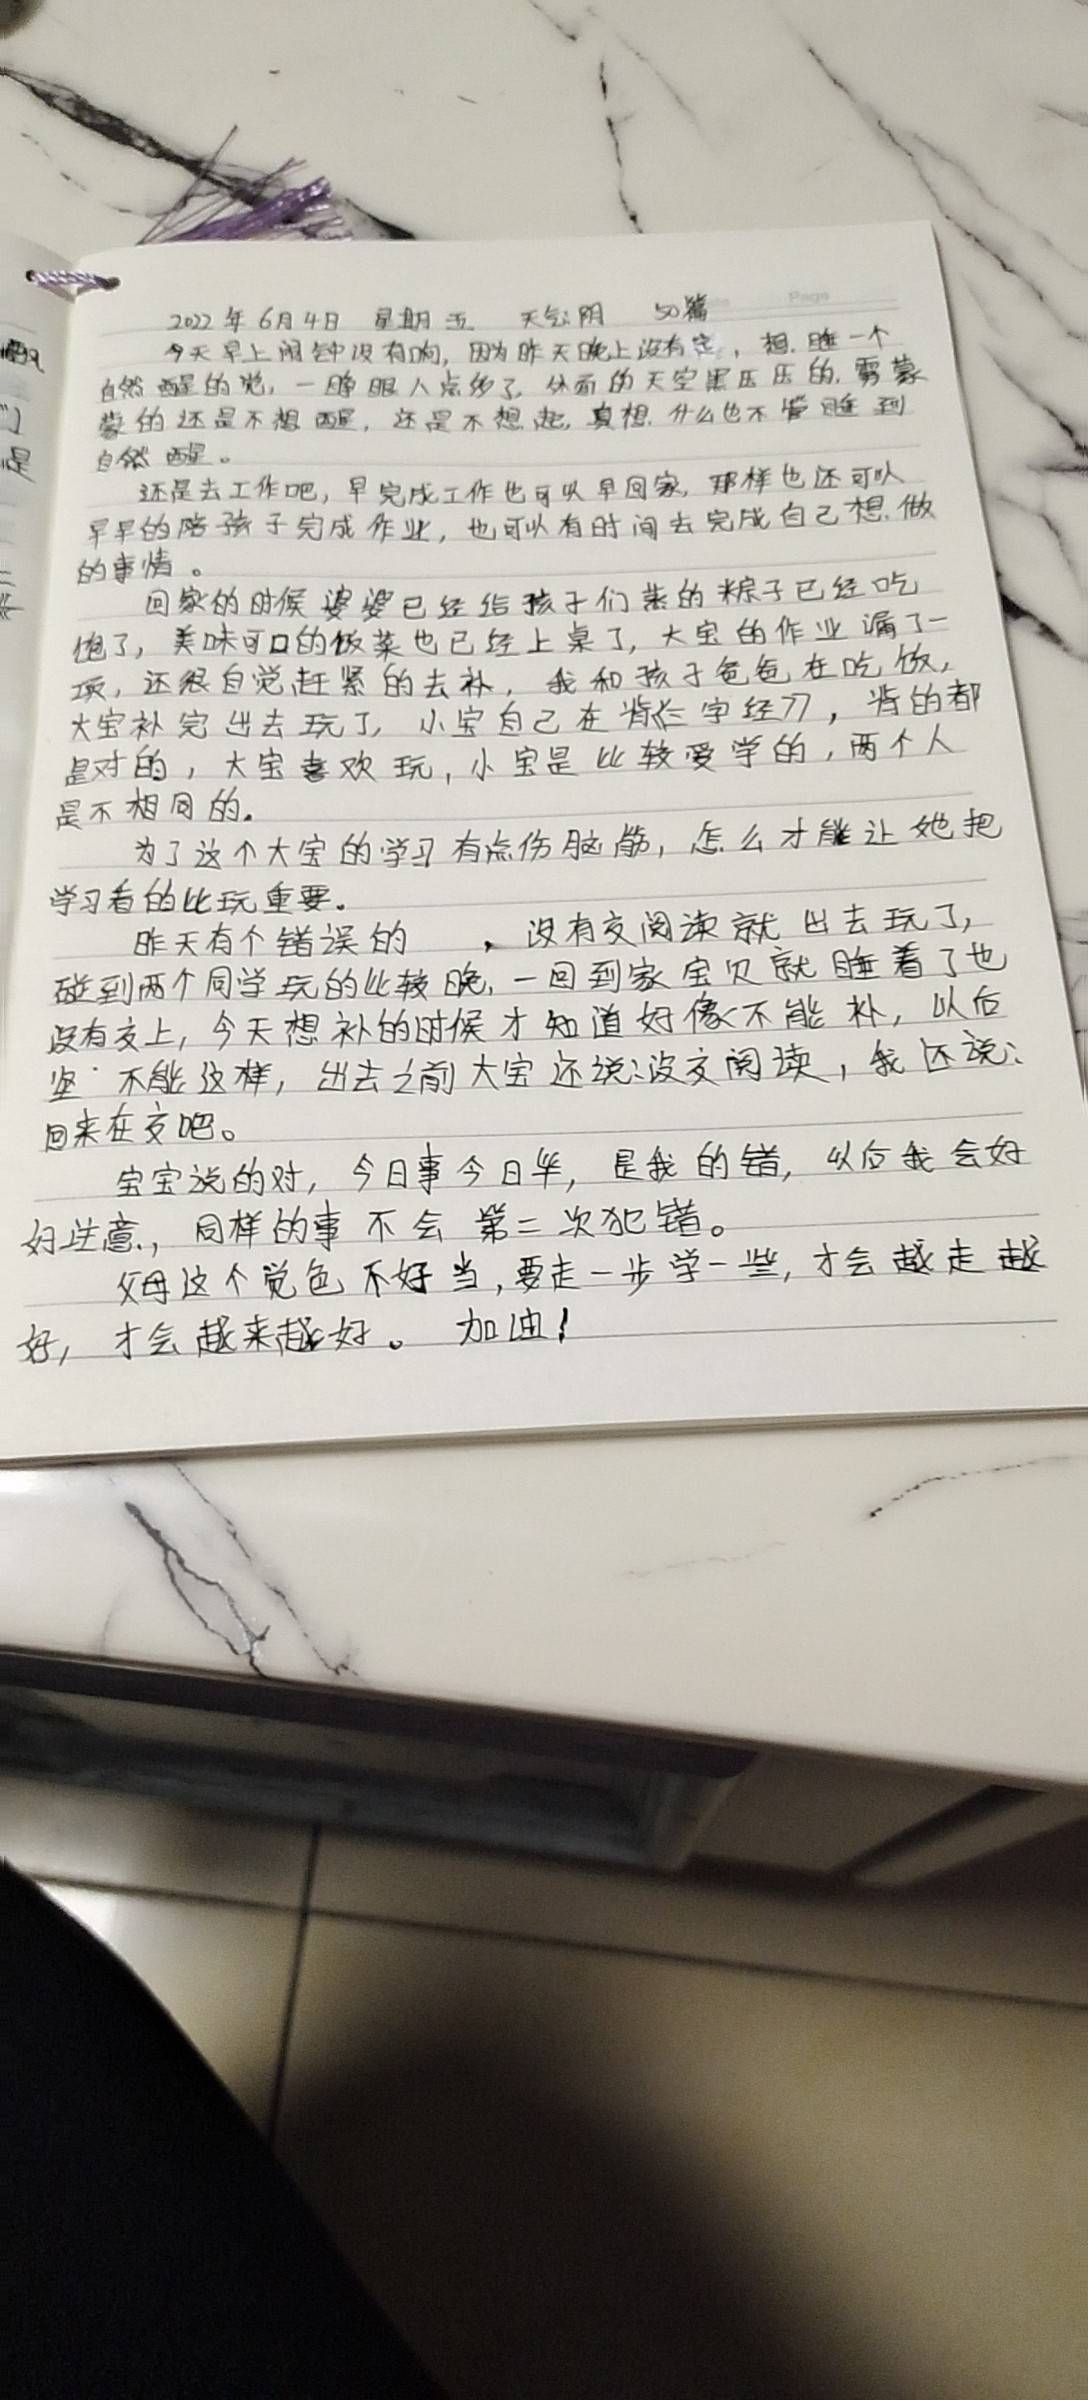 2022年6月4日 星期五 天气:阴 50篇
今天早上闹钟没有响,因为昨天晚上没有定,想睡一个
自然醒的觉,一睁眼八点多了,外面的天空黑压压的,雾蒙
蒙的还是不想醒,还是不想起,真想什么也不管睡到
自然醒。
还是去工作吧,早完成工作也可以早回家,那样也还可以
早早的陪孩子完成作业,也可以有时间去完成自己想做
的事情。
回家的时候婆婆已经给孩子们蒸的粽子已经吃
饱了,美味可口的饭菜也已经上桌了,大宝的作业漏了一
项,还很自觉赶紧的去补,我和孩子爸爸在吃饭,
大宝补完出去玩了,小宝自己在背《三字经》,背的都
是对的,大宝喜欢玩,小宝是比较爱学的,两个人
是不相同的。
为了这个大宝的学习有点伤脑筋,怎么才能让她把
学习看的比玩重要。
昨天有个错误的 ,没有交阅读就出去玩了,
碰到两个同学玩的比较晚,一回到家宝贝就睡着了也
没有交上,今天想补的时候才知道好像不能补,以后
坚 不能这样,出去之前大宝还说:没交阅读,我还说:
回来在交吧。
宝宝说的对,今日事今日毕,是我的错,以后我会好
好注意,同样的事不会第二次犯错。
父母这个觉色不好当,要走一步学一些,才会越走越
好,才会越来越好。 加油!